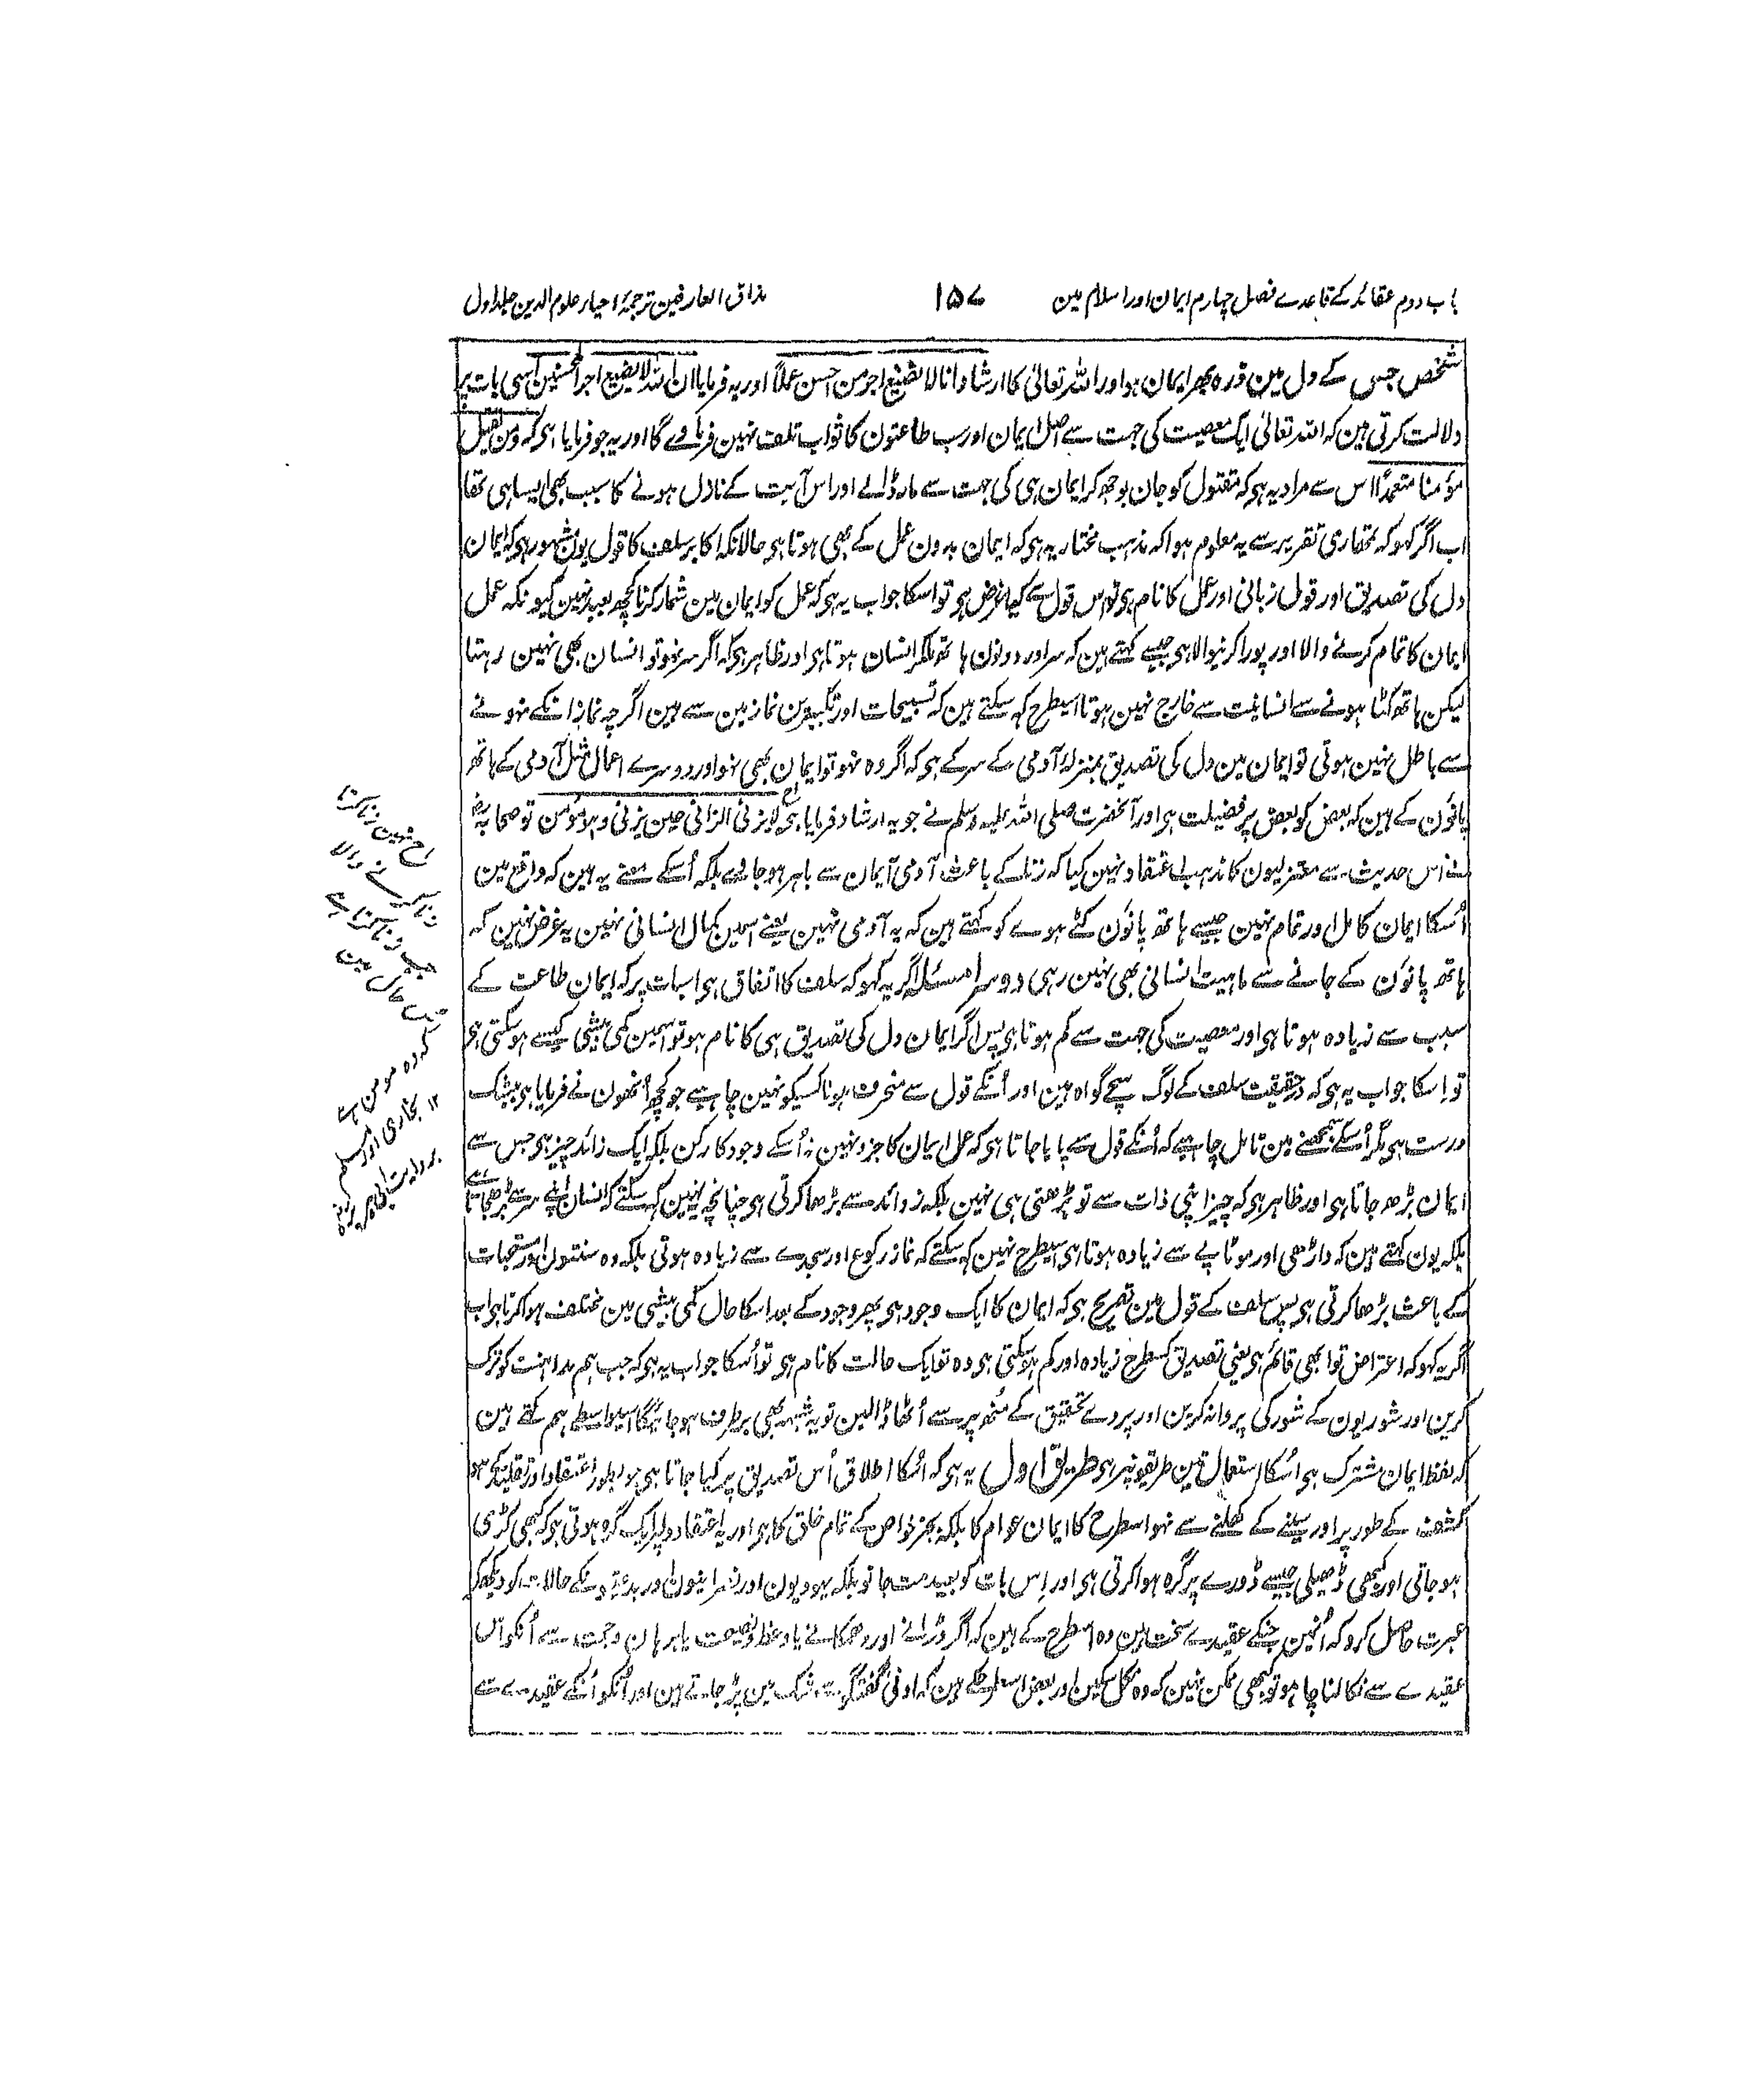 باب دوم عقائد کے قاعدے فصل چہارم ایمان اور اسلام مین
۱۵۷
مذاق العارفین ترجمۂ احیاء علوم الدین جلد اول
شخص جس کے دل مین ذرہ بھر ایمان ہو اور اللہ تعالیٰ کا ارشاد انا لا نضیع اجر من احسن عملاً اور یہ فرمایا ان اللہ لا یضیع اجر المحسنین اسی بات پر
دلالت کرتی ہین کہ اللہ تعالیٰ ایک معصیت کی جہت سے اصل ایمان اور سب طاعتون کا ثواب تلف نہین فرماوے گا اور یہ جو فرمایا ہی کہ ومن یقتل
مؤمنا متعمدًا اس سے مراد یہ ہی کہ مقتول کو جان بوجھ کر ایمان ہی کی جہت سے مار ڈالے اور اس آیت کے نازل ہونے کا سبب بھی ایسا ہی تھا
اب اگر کہو کہ تمھاری تقریر سے یہ معلوم ہوا کہ مذہب مختار یہ ہی کہ ایمان بدون عمل کے بھی ہوتا ہی حالانکہ اکابر سلف کا قول یون مشہور ہی کہ ایمان
دل کی تصدیق اور قول زبانی اور عمل کا نام ہی تو اس قول سے کیا غرض ہی تو اسکا جواب یہ ہی کہ عمل کو ایمان مین شمار کرنا کچھ بعید نہین کیونکہ عمل
ایمان کا تمام کرنے والا اور پورا کرنیوالا ہی جیسے کہتے ہین کہ سر اور دونون ہاتھ ملکر انسان ہوتا ہی اور ظاہر ہی کہ اگر سر نہو تو انسان بھی نہین رہتا
لیکن ہاتھ کٹا ہونے سے انسانیت سے خارج نہین ہوتا اسیطرح کہہ سکتے ہین کہ تسبیحات اور تکبیرین نماز مین سے ہین اگرچہ نماز انکے نہونے
سے باطل نہین ہوتی تو ایمان مین دل کی تصدیق بمنزلہ آدمی کے سر کے ہی کہ اگر وہ نہو تو ایمان بھی نہو اور دوسرے اعمال مثل آدمی کے ہاتھ
پانوَن کے ہین کہ بعض کو بعض پر فضیلت ہی اور آنحضرت صلی اللہ علیہ وسلم نے جو یہ ارشاد فرمایا ہی لا یزنی الزانی حین یزنی وہو مؤمن تو صحابہ رض
نے اس حدیث سے معتزلیون کا مذہب اعتقاد نہین کیا کہ زنا کے باعث آدمی ایمان سے باہر ہو جاوے بلکہ اُسکے معنے یہ ہین کہ واقع مین
اُسکا ایمان کامل اور تمام نہین جیسے ہاتھ پانوَن کٹے ہوے کو کہتے ہین کہ یہ آدمی نہین یعنے اسمین کمال انسانی نہین یہ غرض نہین کہ
ہاتھ پانوَن کے جانے سے ماہیت انسانی بھی نہین رہی دوسرا مسئلہ اگر یہ کہو کہ سلف کا اتفاق ہی اسبات پر کہ ایمان طاعت کے
سبب سے زیادہ ہوتا ہی اور معصیت کی جہت سے کم ہوتا ہی پس اگر ایمان دل کی تصدیق ہی کا نام ہو تو اسمین کمی بیشی کیسے ہوسکتی ہی
تو اِسکا جواب یہ ہی کہ درحقیقت سلف کے لوگ سچے گواہ ہین اور اُنکے قول سے منحرف ہونا کسیکو نہین چاہیے جو کچھ اُنھون نے فرمایا ہی بیشک
درست ہی مگر اُسکے سمجھنے مین تامل چاہیے کہ اُنکے قول سے پایا جاتا ہی کہ عمل ایمان کا جزو نہین نہ اُسکے وجود کا رکن بلکہ ایک زائد چیز ہی جس سے
ایمان بڑھ جاتا ہی اور ظاہر ہی کہ چیز اپنی ذات سے تو بڑھتی ہی نہین بلکہ زوائد سے بڑھا کرتی ہی چنانچہ یہ نہین کہہ سکتے کہ انسان اپنے سر سے بڑھ جاتا ہے
بلکہ یون کہتے ہین کہ داڑھی اور موٹاپے سے زیادہ ہوتا ہی اسیطرح نہین کہہ سکتے کہ نماز رکوع اور سجدے سے زیادہ ہوتی بلکہ وہ سنتون اور مستحبات
کے باعث بڑھا کرتی ہی پس سلف کے قول مین تصریح ہی کہ ایمان کا ایک وجود ہی پھر وجود کے بعد اسکا حال کمی بیشی مین مختلف ہوا کرتا ہی اب
اگر یہ کہو کہ اعتراض تو ابھی قائم ہی یعنی تصدیق کسطرح زیادہ اور کم ہوسکتی ہی وہ تو ایک حالت کا نام ہی تو اُسکا جواب یہ ہی کہ جب ہم مداہنت کو ترک
کرین اور شوریون کے شور کی پروا نہ کرین اور پردے تحقیق کے مُنھ پر سے اُٹھا ڈالین تو یہ شبہہ بھی برطرف ہو جائیگا اسیواسطے ہم کہتے ہین
کہ لفظ ایمان مشترک ہی اسُکا استعمال تین طریقونپر ہی طریق اول یہ ہی کہ اسُکا اطلاق اُس تصدیق پر کیا جاتا ہی جو بطور اعتقاد اور تقلید کے ہو
کشف کے طور پر اور سینے کے کھلنے سے نہو اسطرح کا ایمان عوام کا بلکہ بجز خواص کے تمام خلق کا ہی اور یہ اعتقاد دلپر ایک گرہ ہوتی ہی کہ کبھی کڑی
ہو جاتی اور کبھی ڈھیلی جیسے ڈورے پر گرہ ہوا کرتی ہی اور اِس بات کو بعید مت جانو بلکہ یہودیون اور نصرانیون اور بدعتیونکے حالات کو دیکھکر
عبرت حاصل کرو کہ اُنمین جنکے عقیدے سخت ہین وہ اسطرح کے ہین کہ اگر ڈرانے اور دھمکانے یا وعظ و نصیحت یا برہان و حجت سے اُنکو اُس
عقیدے سے نکالنا چاہو تو کبھی ممکن نہین کہ وہ نکل سکین اور بعض اسطرحکے ہین کہ ادنی گفتگو سے شک مین پڑ جاتے ہین اور اُنکو اُنکے عقیدے سے
اح نہین زنا کرتا
زنا کرنے والا
جب زنا کرتا ہے
اس حال مین
کہ وہ مومن ہے
۱۲ بخاری اور مسلم
بروایت ابی ہریرہ